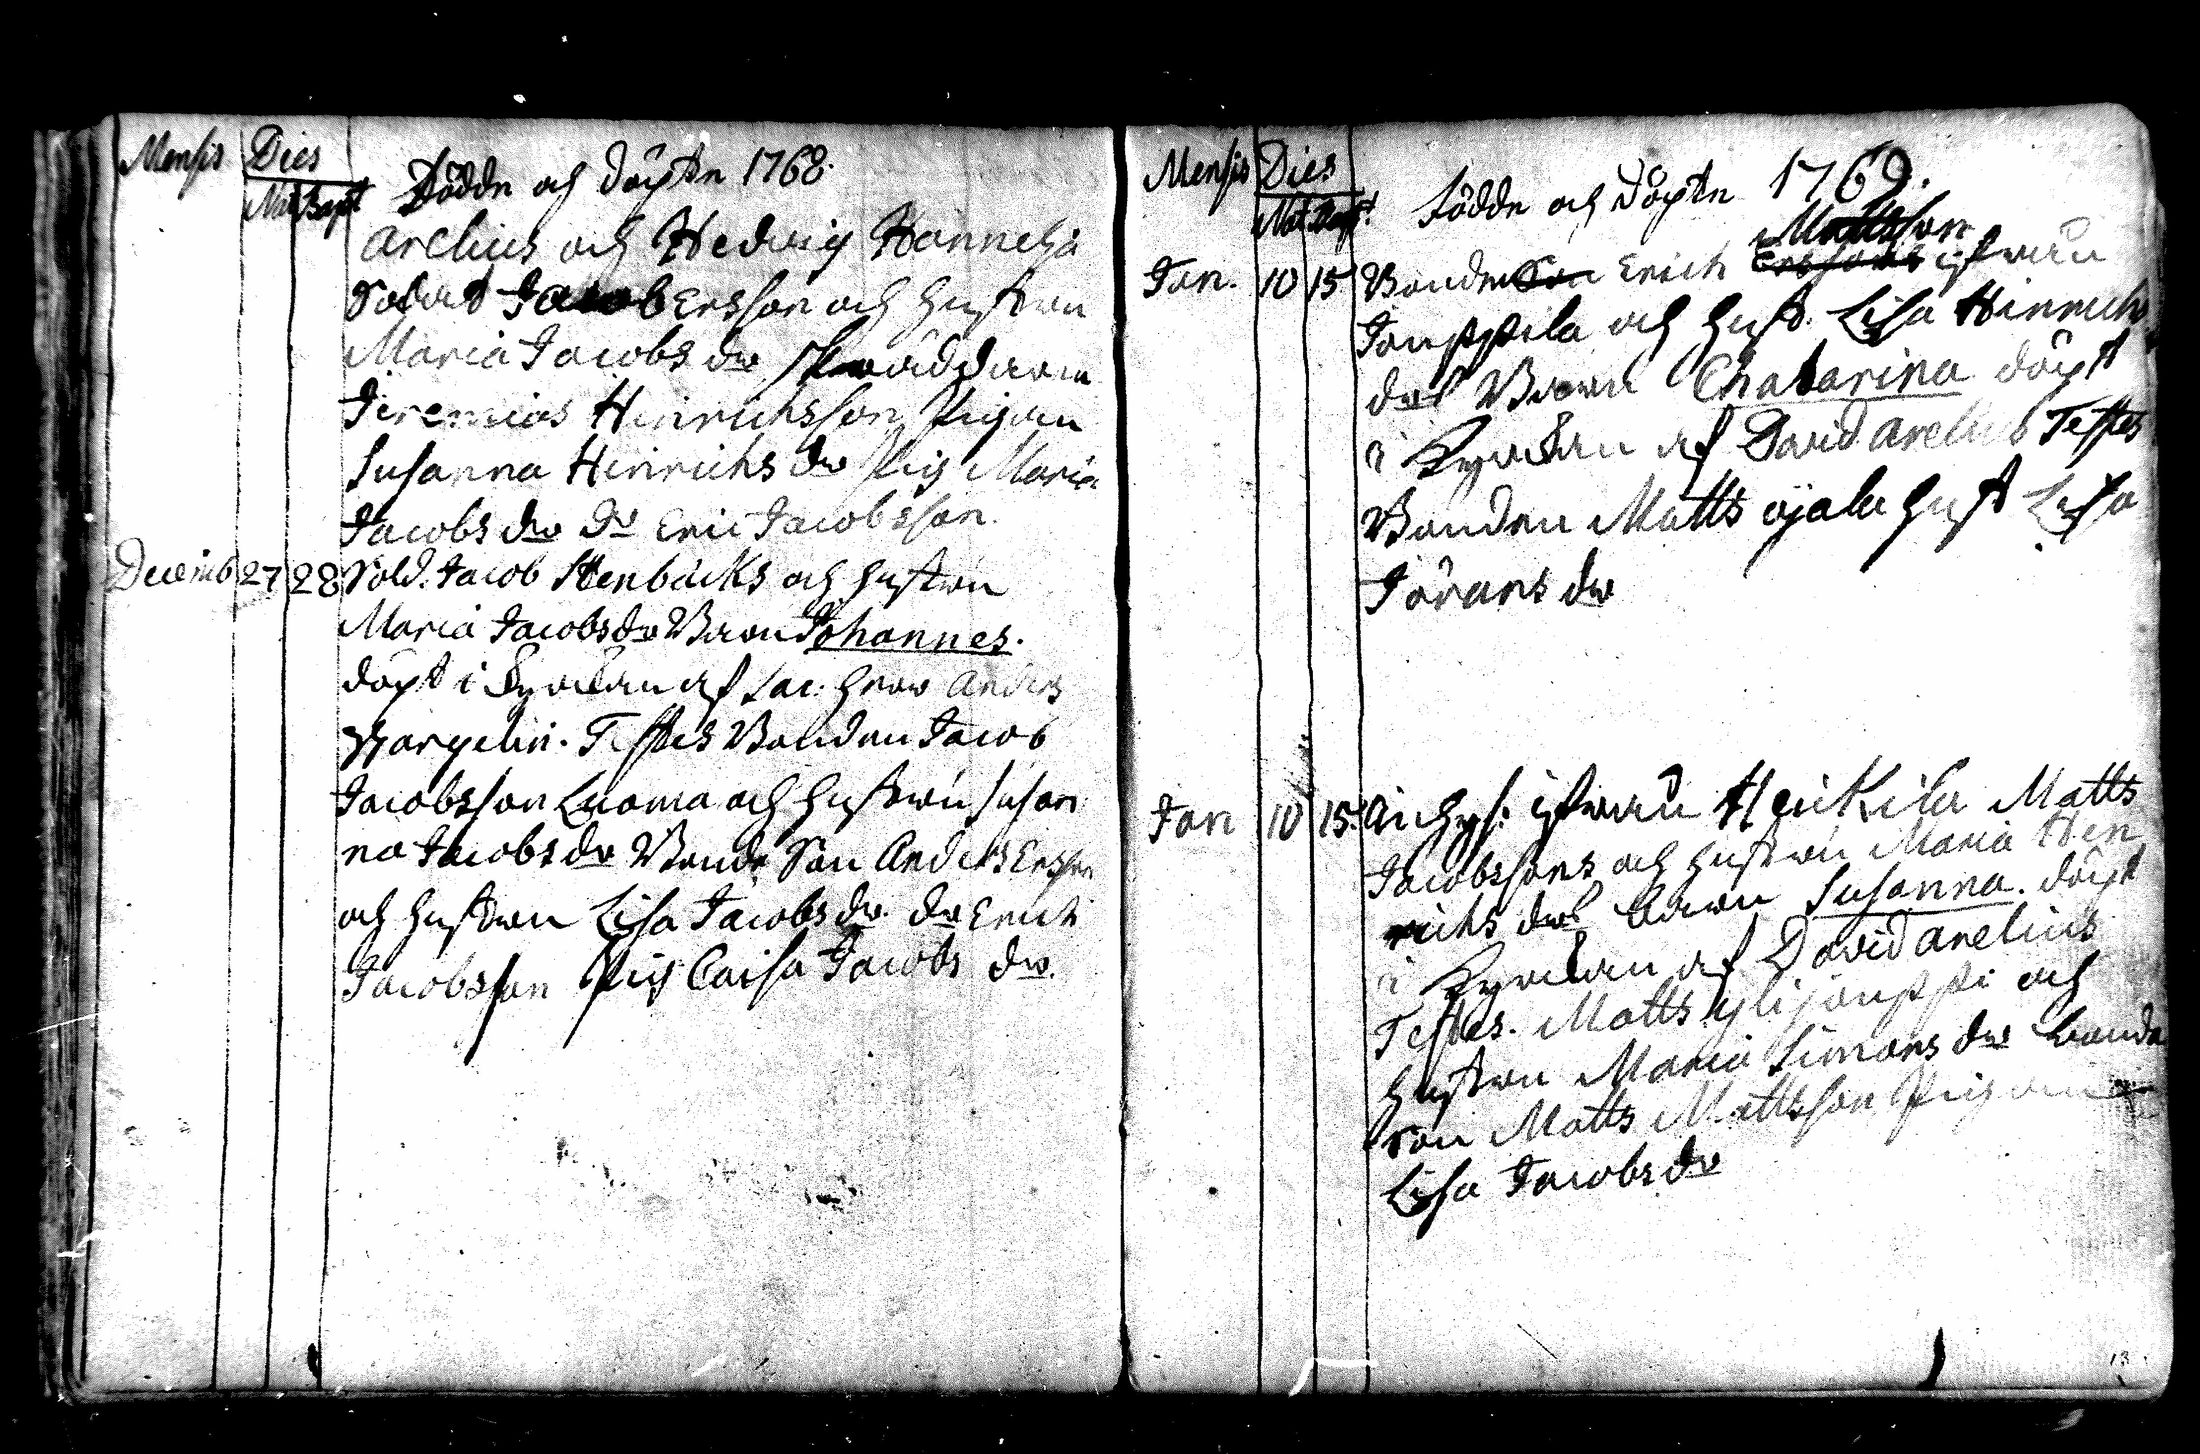 Mensis Dies
Nat Bapt. Födde och döpte 1768.
Arelius och Hedwig Hannelia
Soldat Jacob Ersson och hustrun
Maria Jacobs dr Skräddaren
Jeremias Hinrichsson Pigan
Susanna Hinrichs dr Pig Maria
Jacobs dr Dr Eric Jacobsson.
Decemb 27 28 Sold. Jacob Stenbäcks och hustrun
Maria Jacobs dr Barn Johannes.
döpt i Kyrkan af Sac: herr Anders
Testes Bonden Jacob
Jacobsson Luoma och hustrun Susan
na Jacobs dr Bonde Son Anders Ersson
och hustrun Lisa Jacobs dr. Dr Erich
Jacobsson Pig Caisa Jacobs dr.
Mensis Dies
Nat Bapt. Födde och Döpte 1769.
Mattsson
Jan. 10 15 Bonden Son Erich Erssons ifrån
Jouppila och hust. Lisa Hinrichs
drs Barn Chatarina döpt
i Kyrkan af David Arelius Testes
Bonden Matts ojala hust Lisa
Jörans dr
Jan 10 15. Inhys: ifrån Heikila Matts
Jacobssons och hustrun Maria Hen
richs drs barn Susanna. döpt
i Kyrkan af David Arelius
Testes. Matts ylijouppi och
hustrun Maria Simons dr bonde
Son Matts Mattsson Pigan
Lisa Jacobs dr
13